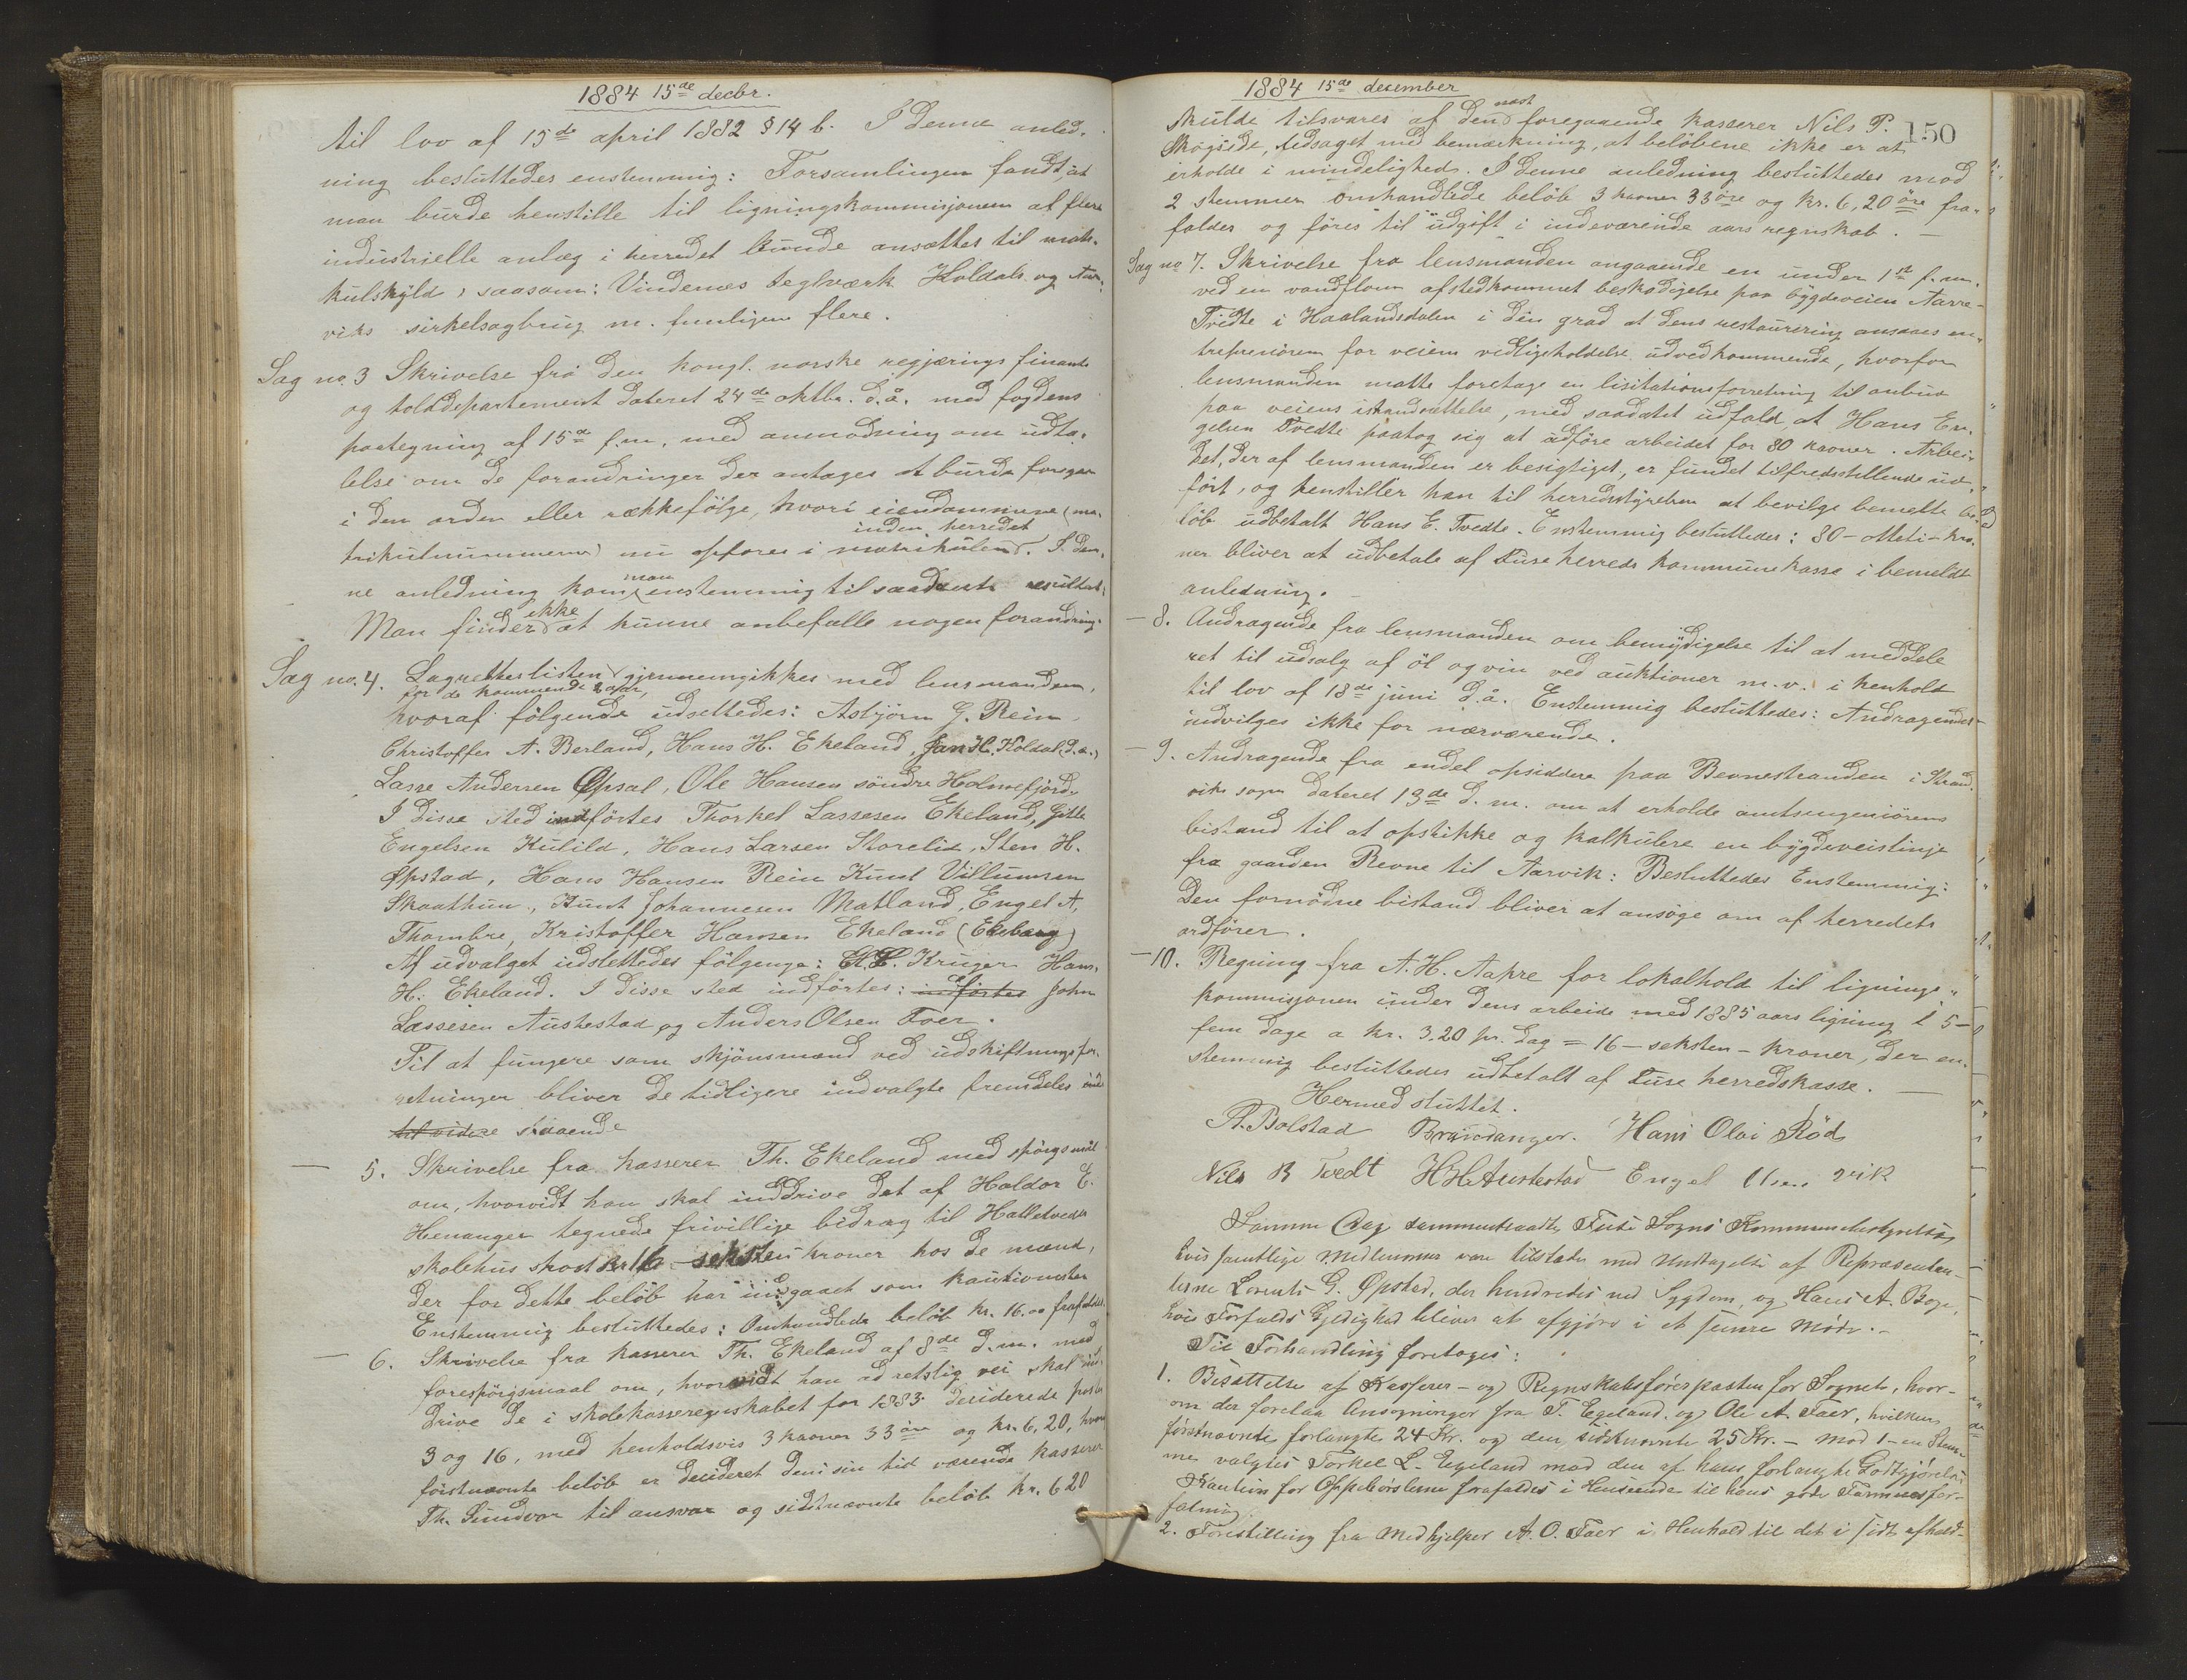 1884 15de decbr.
til lov af 15de april 1882 § 14 b. I denne anled-
ning besluttedes enstemmig: Forsamlingen fandt, at
man burde henstille til ligningskommisjonen at flere
industrielle anlæg i herredet kunde ansættes til matri-
kulskyld, saasom: Vindenes teglværk Holdals og Aar-
viks sirkelsagbrug m. fuuligen flere.
Sag no. 3 Skrivelse fra den kongl. norske regjærings finants
og tolddepartement dateret 24de oktbr. d.å. med fogdens
paategning af 15de f.m. med anmodning om udta-
lelse om de forandringer der antages at burde foregaa
i den orden eller rækkefölge, hvori eiendommene (ma-
inden herredet
trikulnummerne) nu opføres i matrikulen. I den-
man
ne anledning kom enstemmig til saadant resultat:
ikke
Man finder at kunne anbefalle nogen forandring.
Sag no. 4. Lagrettestisten gjennemgikkes med lensmanden,
for de kommende 2 aar,
hvoraf fölgende udslettedes: Asbjörn G. Rein
Christoffer A. Berland, Hans H. Ekeland, Jan H. Holdal (d.æ.)
Lasse Andersen Øpsal, Ole Hansen söndre Holmefjord.
I disse sted indførtes Thorkel Lassesen Ekeland, Gitle
Engelsen Kulild, Hans Larsen Storeli, Sten H.
Øpstad, Hans Hansen Rein Knut Villumsen
Skaathun, Knut Johannesen Matland, Engel A.
Thombre, Kristoffer Hansen Ekeland (Ekebærg)
Af udvalget udslettedes fölgenge: Kruger Hans
H. Ekeland. I disse sted indførtes: indførtes John
Lassesen Austestad, og Anders Olsen Foer.
Til at fungere som skjönsmænd ved udskiftningsfor-
retninger bliver de tidligere indvalgte fremdeles ind
til videre staaende
— 5. Skrivelse fra kasserer Th. Ekeland med spörgsmål
om, hvorvidt han skal inddrive det af Haldor E.
Henanger tegnede frivillige bidrag til Halletvedt
skolehus stort kr 16 - seksten kroner hos de mænd,
der for dette beløb har indgaaet som kautionister
Enstemmig besluttedes: Omhandlede beløb kr. 16.00 frafaldes.
— 6. Skrivelse fra kasserer Th. Ekeland af 8de d.m. med
forespörgsmaal om, hvorvidt han ad retslig vei skal ind-
drive de i skolekasseregnskabet for 1883 desiderede poster
3 og 16, med henholdsvis 3 kroner 33 öre og kr. 6,20, hvoraf
förstnævnte beløb er desideret den i sin tid værende kasserer
Th. Sundvor til ansvar og sidstnævnte beløb kr. 6 20
1884 15de desember
150
næst
skulde tilsvares af den foregaaende kasserer Nils P.
Skogside, ledsaget med bemærkning, at beløbene ikke er at
erholde i mindelighed. I denne anledning besluttedes mod
2 stemmer omhandlede beløb 3 kroner 33 öre og kr. 6,20 öre fra-
faldes og føres til udgift i indeværende aars regnskab. —
Sag no 7. Skrivelse fra lensmanden angaaende en under 1ste f.m.
ved en vandflom afstedkommet beskadigelse paa bygdeveien Aarre-
Tvedte i Haalandsdalen i den grad at dens restaurering ansaaes en-
treprenören for veiens vedligeholdelse udvedkommende, hvorfor
lensmanden matte foretage en lisitationsforretning til anbud
paa veiens istandsættelse, med saadatt udfald, at Hans En-
gelsen Tvedte paatog sig at udføre arbeidet for 80 kroner. Arbei-
det, der af lensmanden er besigtiget, er fundet tilfredsstillende ud-
ført, og henstiller han til herredsstyrelsen at bevilge bemelte be-
løb udbetalt Hans E. Tvedte. Enstemmig besluttedes: 80 - Otteti - kro-
ner bliver at udbetale af Fuse herreds kommunekasse i bemeldt
anledning.
— 8. Andragende fra lensmanden om bemydigelse til at meddele
ret til udsalg af öl og vin ved auktioner m.v. i henhold
til lov af 18de juni d.å. Enstemmig besluttedes: Andragendet
indvilges ikke for nærværende.
— 9. Andragende fra endel opsiddere paa Bevnestranden i Strand-
viks sogn dateret 13de d.m. om at erholde amtsingeniörens
bistand til at opstikke og kalkulere en bygdeveislinje
fra gaarden Revne til Aarvik: Besluttedes Enstemmig:
Den fornødne bistand bliver at ansöge om af herredets
ordfører.
— 10. Regning fra A. H. Aakre for lokalhold til lignings-
kommisjonen under dens arbeide med 1885 aars ligning i 5 -
fem dage a kr. 3.20 pr. dag = 16 - seksten - kroner, der en-
stemmig besluttedes udbetalt af Fuse herredskasse. —
Hermed sluttet.
Bolstad Brundanger. Hans Olai Röd
Nils B Tvedt H H Austestad Engel Vik
Samme Dag sammentraadte Fuse Sogns Kommunebestyrelse,
hvis samtlige Medlemmer vare tilstede med Undtagelse af Repræsentan-
terne Lorents G. Øpsted, der hindredes ved Sygdom, og Hans A. Boge,
hvis Forfalds Gyldighed bliver at afgjøre i et senere Møde. —
Til Forhandling foretoges:
1. Besættelse af Kasserer- og Regnskabsførerposten for Sognet, hvor-
om der forelaa Ansøgninger fra T. Egeland og Ole A. Foer, hvilken
førstnævnte forlangte 24 Kr. og den sidstnævnte 25 Kr. — Mod 1 - en Stem-
me valgtes Torkel L. Egeland mod den af ham forlangte Godtgjørelse
Kaution for Oppebørslerne frafaldes i Henseende til hans gode Formuesfor-
fatning.
2. Forestilling fra Medhjelper A. O. Foer i Henhold til det i sidst afhold-